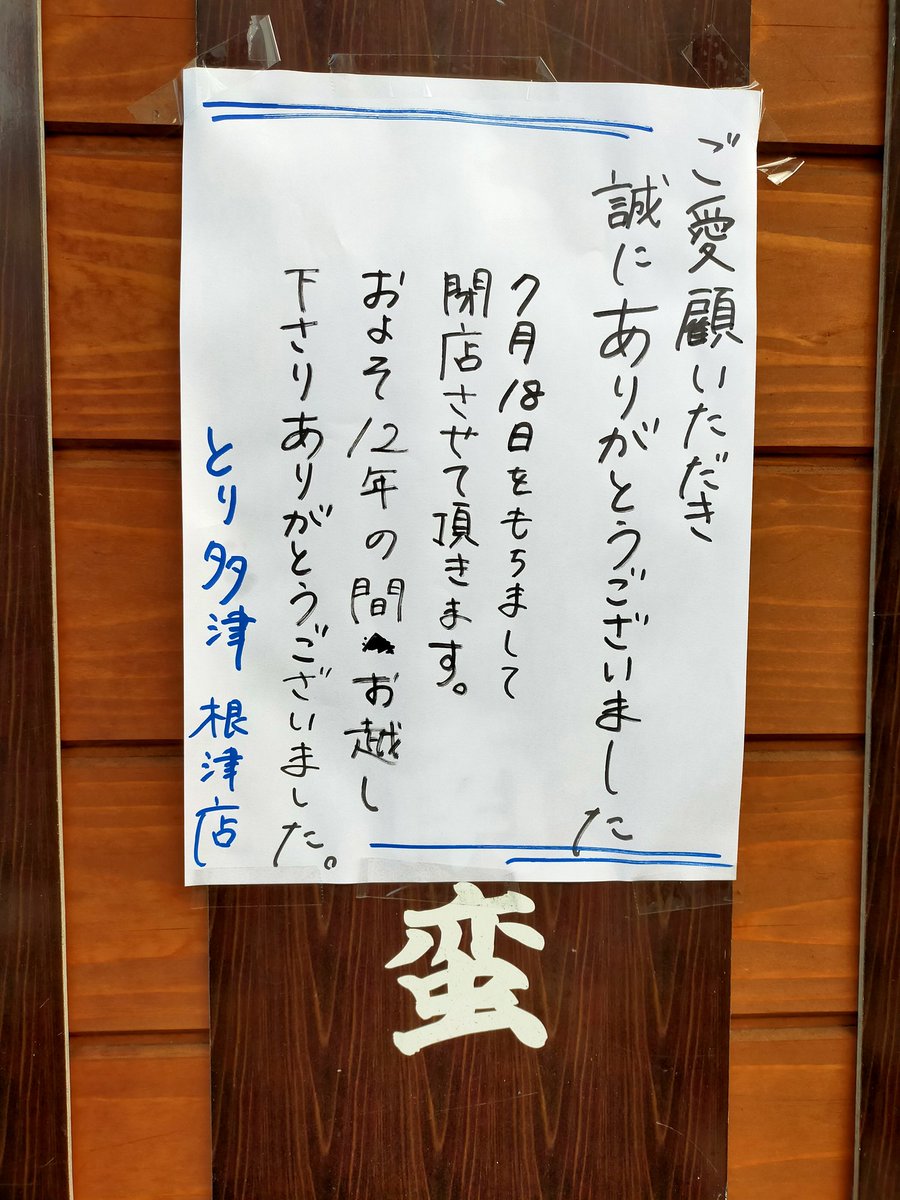 ご愛顧いただき
誠にありがとうございました
7月18日をもちまして
閉店させて頂きます。
およそ12年の間お越し
下さりありがとうございました。
とり多津 根津店
蛮